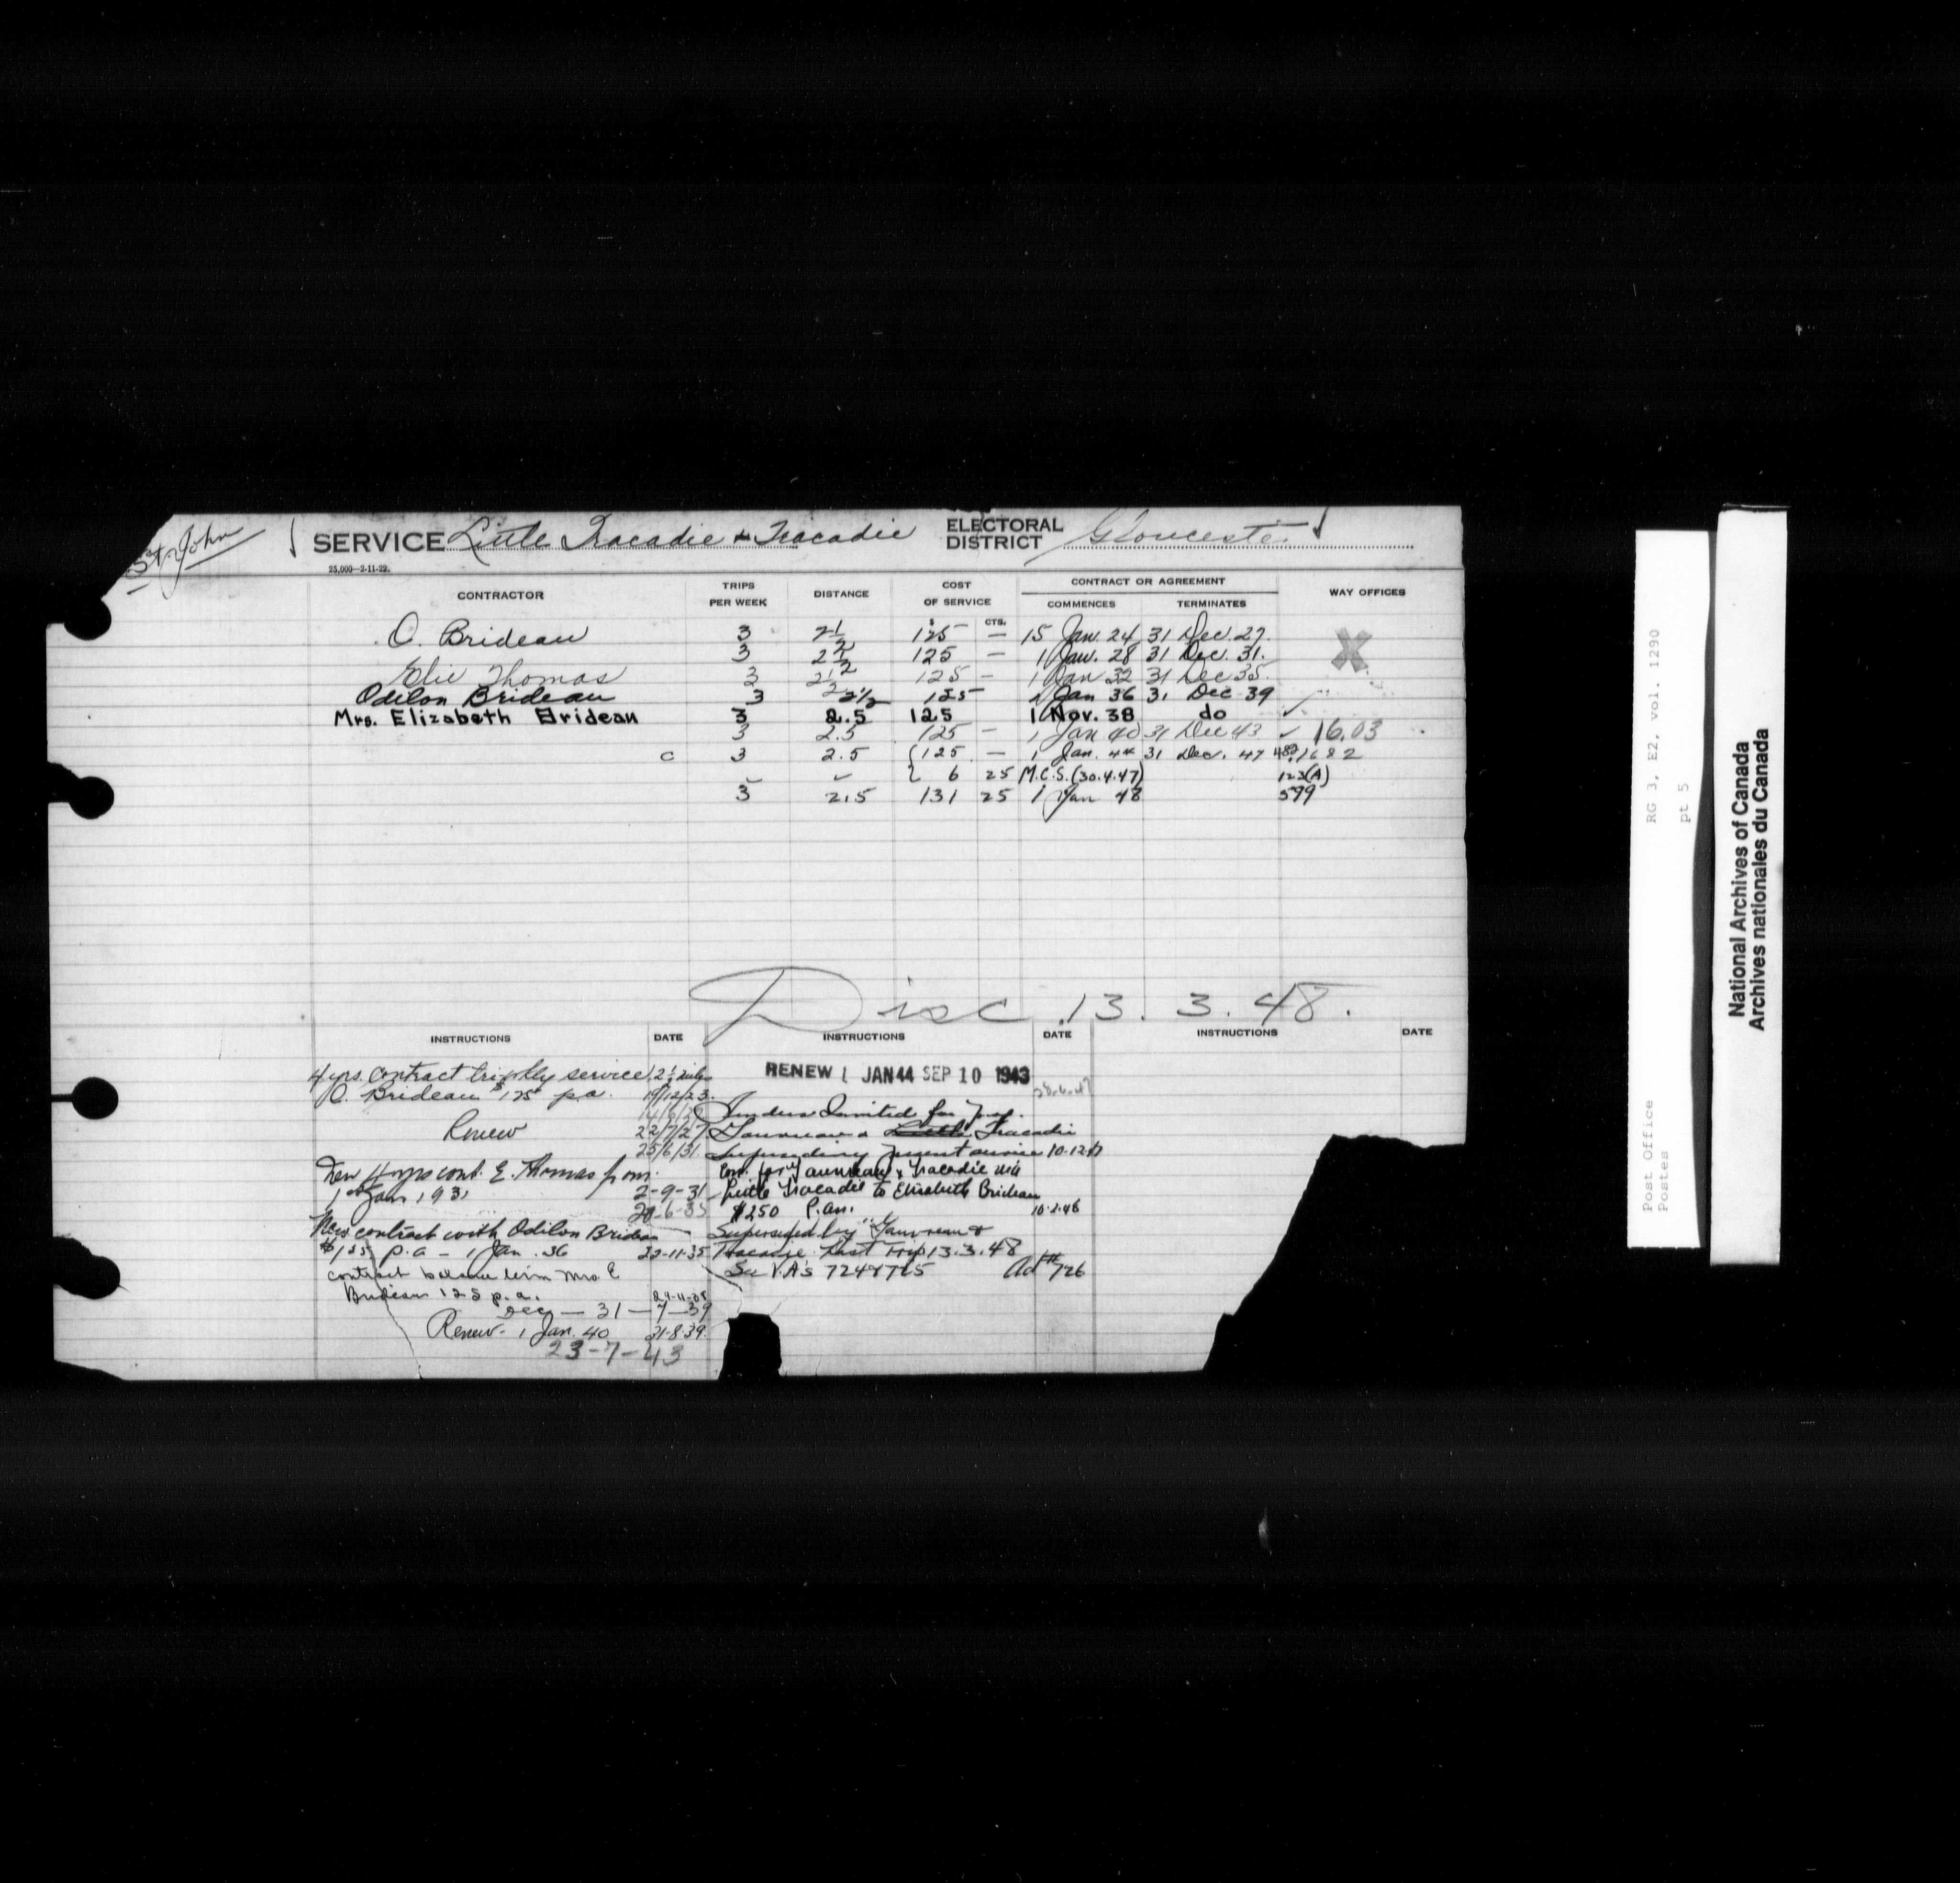 St John
SERVICE Little Tracadie & Tracadie ELECTORAL DISTRICT Gloucester
25,000—2-11-22.
CONTRACTOR TRIPS PER WEEK DISTANCE COST OF SERVICE CONTRACT OR AGREEMENT COMMENCES TERMINATES WAY OFFICES
$ CTS.
O. Brideau 3 2½ 125 — 15 Jan. 24 31 Dec. 27.
3 2½ 125 — 1 Jan. 28 31 Dec. 31.
Elie Thomas 3 2½ 125 — 1 Jan 32 31 Dec 35.
Odilon Brideau 3 2½ 125 1 Jan 36 31 Dec 39
Mrs. Elizabeth Brideau 3 2.5 125 1 Nov. 38 do ✓
3 2.5 125 — 1 Jan 40 31 Dec 43 ✓ 16.03
c 3 2.5 125 — 1 Jan. 44 31 Dec. 47 1682
6 25 M.C.S. (30.4.47) 123(A)
3 2.5 131 25 1 Jan 48 599
Disc. 13. 3. 48.
INSTRUCTIONS DATE INSTRUCTIONS DATE INSTRUCTIONS DATE
4 yrs. contract tri-wkly service, 2½ miles
O. Brideau $125 p.a. 19/12/23.
Renew 22/7/27
25/6/31.
New 4 yrs cont. E. Thomas from
1st Jan 1931 2-9-31
20-6-35
New contract with Odilon Brideau
$125 p.a - 1 Jan. 36 22-11-35
contract balance term Mrs. E
Brideau 125 p.a. 29-11-38
Dec — 31 — 7 — 39
Renew - 1 Jan. 40 31-8-39.
23-7-43
RENEW 1 JAN 44 SEP 10 1943
28.6.47
Tenders Invited for
Gauvreau & Little Tracadie
superseding present service 10-12-47
Con. for Gauvreau & Tracadie via
Little Tracadie to Elisabeth Brideau
$250 P.an. 10-2-48
Superseded by "Gauvreau &
Tracadie. Last Trip 13.3.48
See V.A's 724 & 725 726
National Archives of Canada
Archives nationales du Canada
RG 3, E2, vol. 1290
pt 5
Post Office
Postes